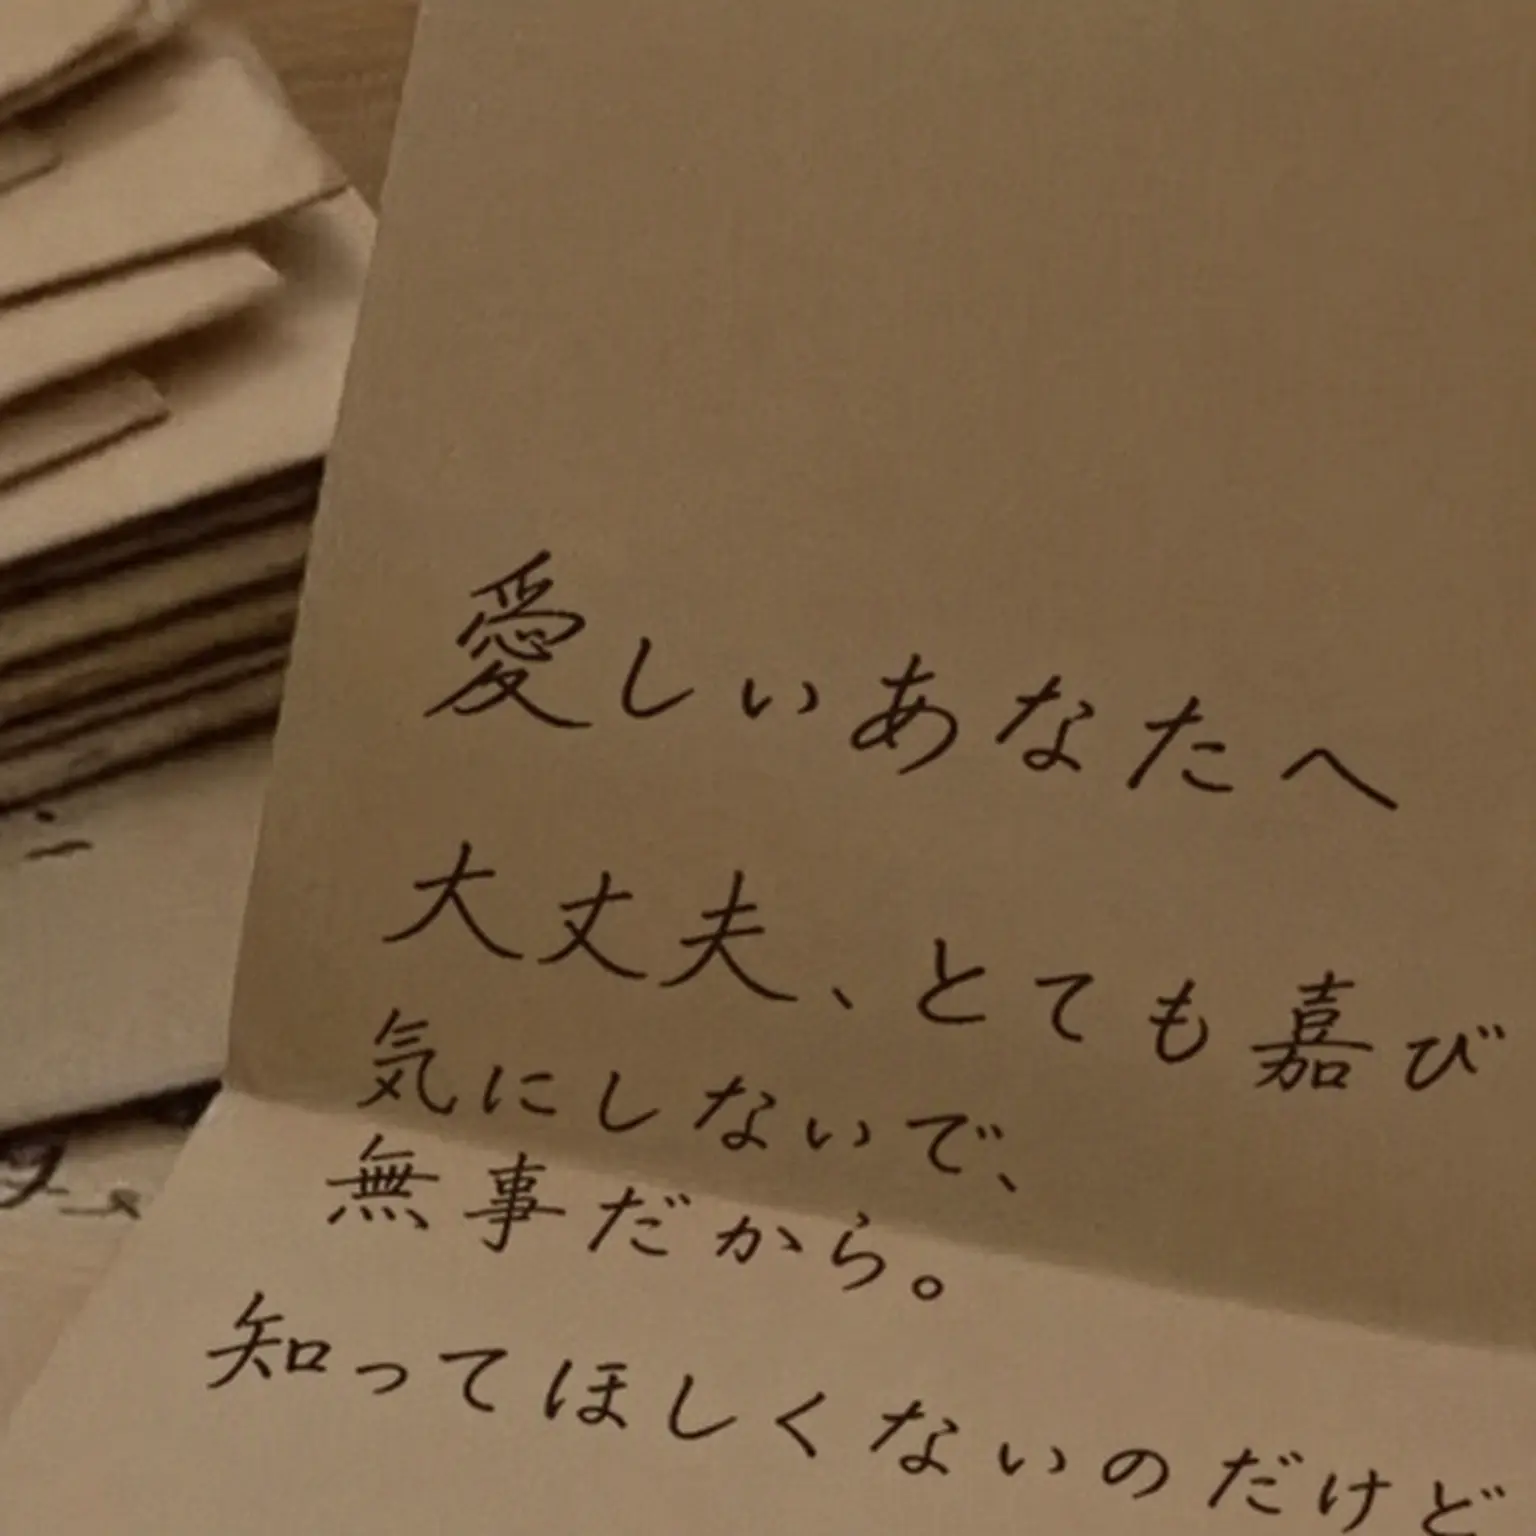 愛しいあなたへ
大丈夫、とても嘉び
気にしないで、
無事だから。
知ってほしくないのだけど